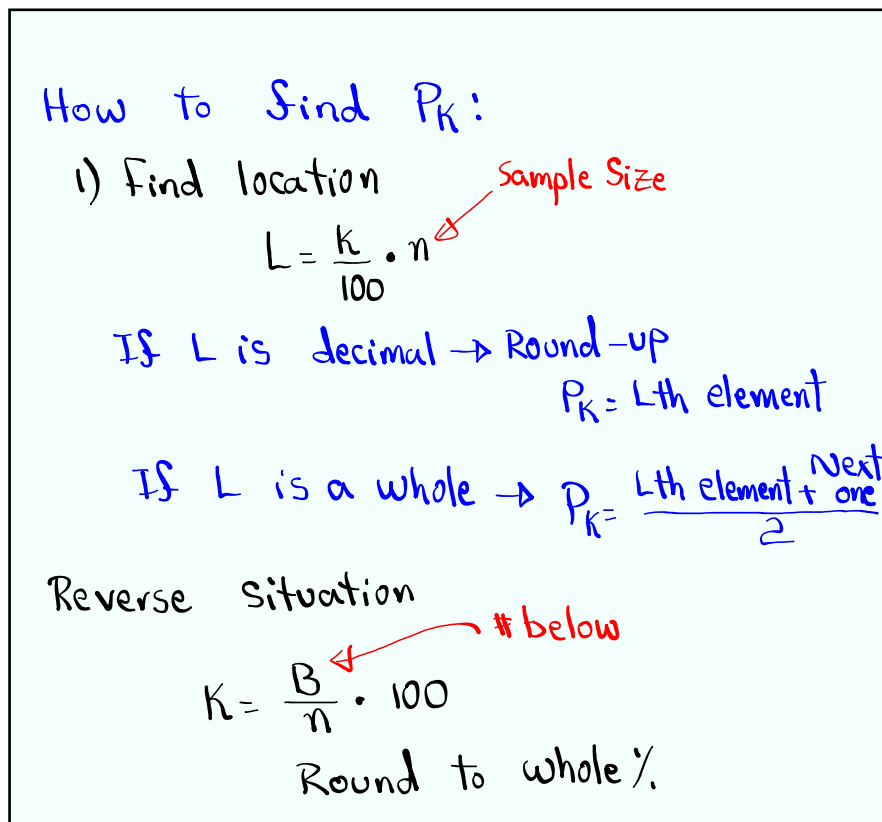 How to find P_K:
1) Find location
Sample Size
L = K/100 • n
If L is decimal → Round-up
P_K = Lth element
If L is a whole → P_K = (Lth element + Next one)/2
Reverse situation
# below
K = B/n • 100
Round to whole %